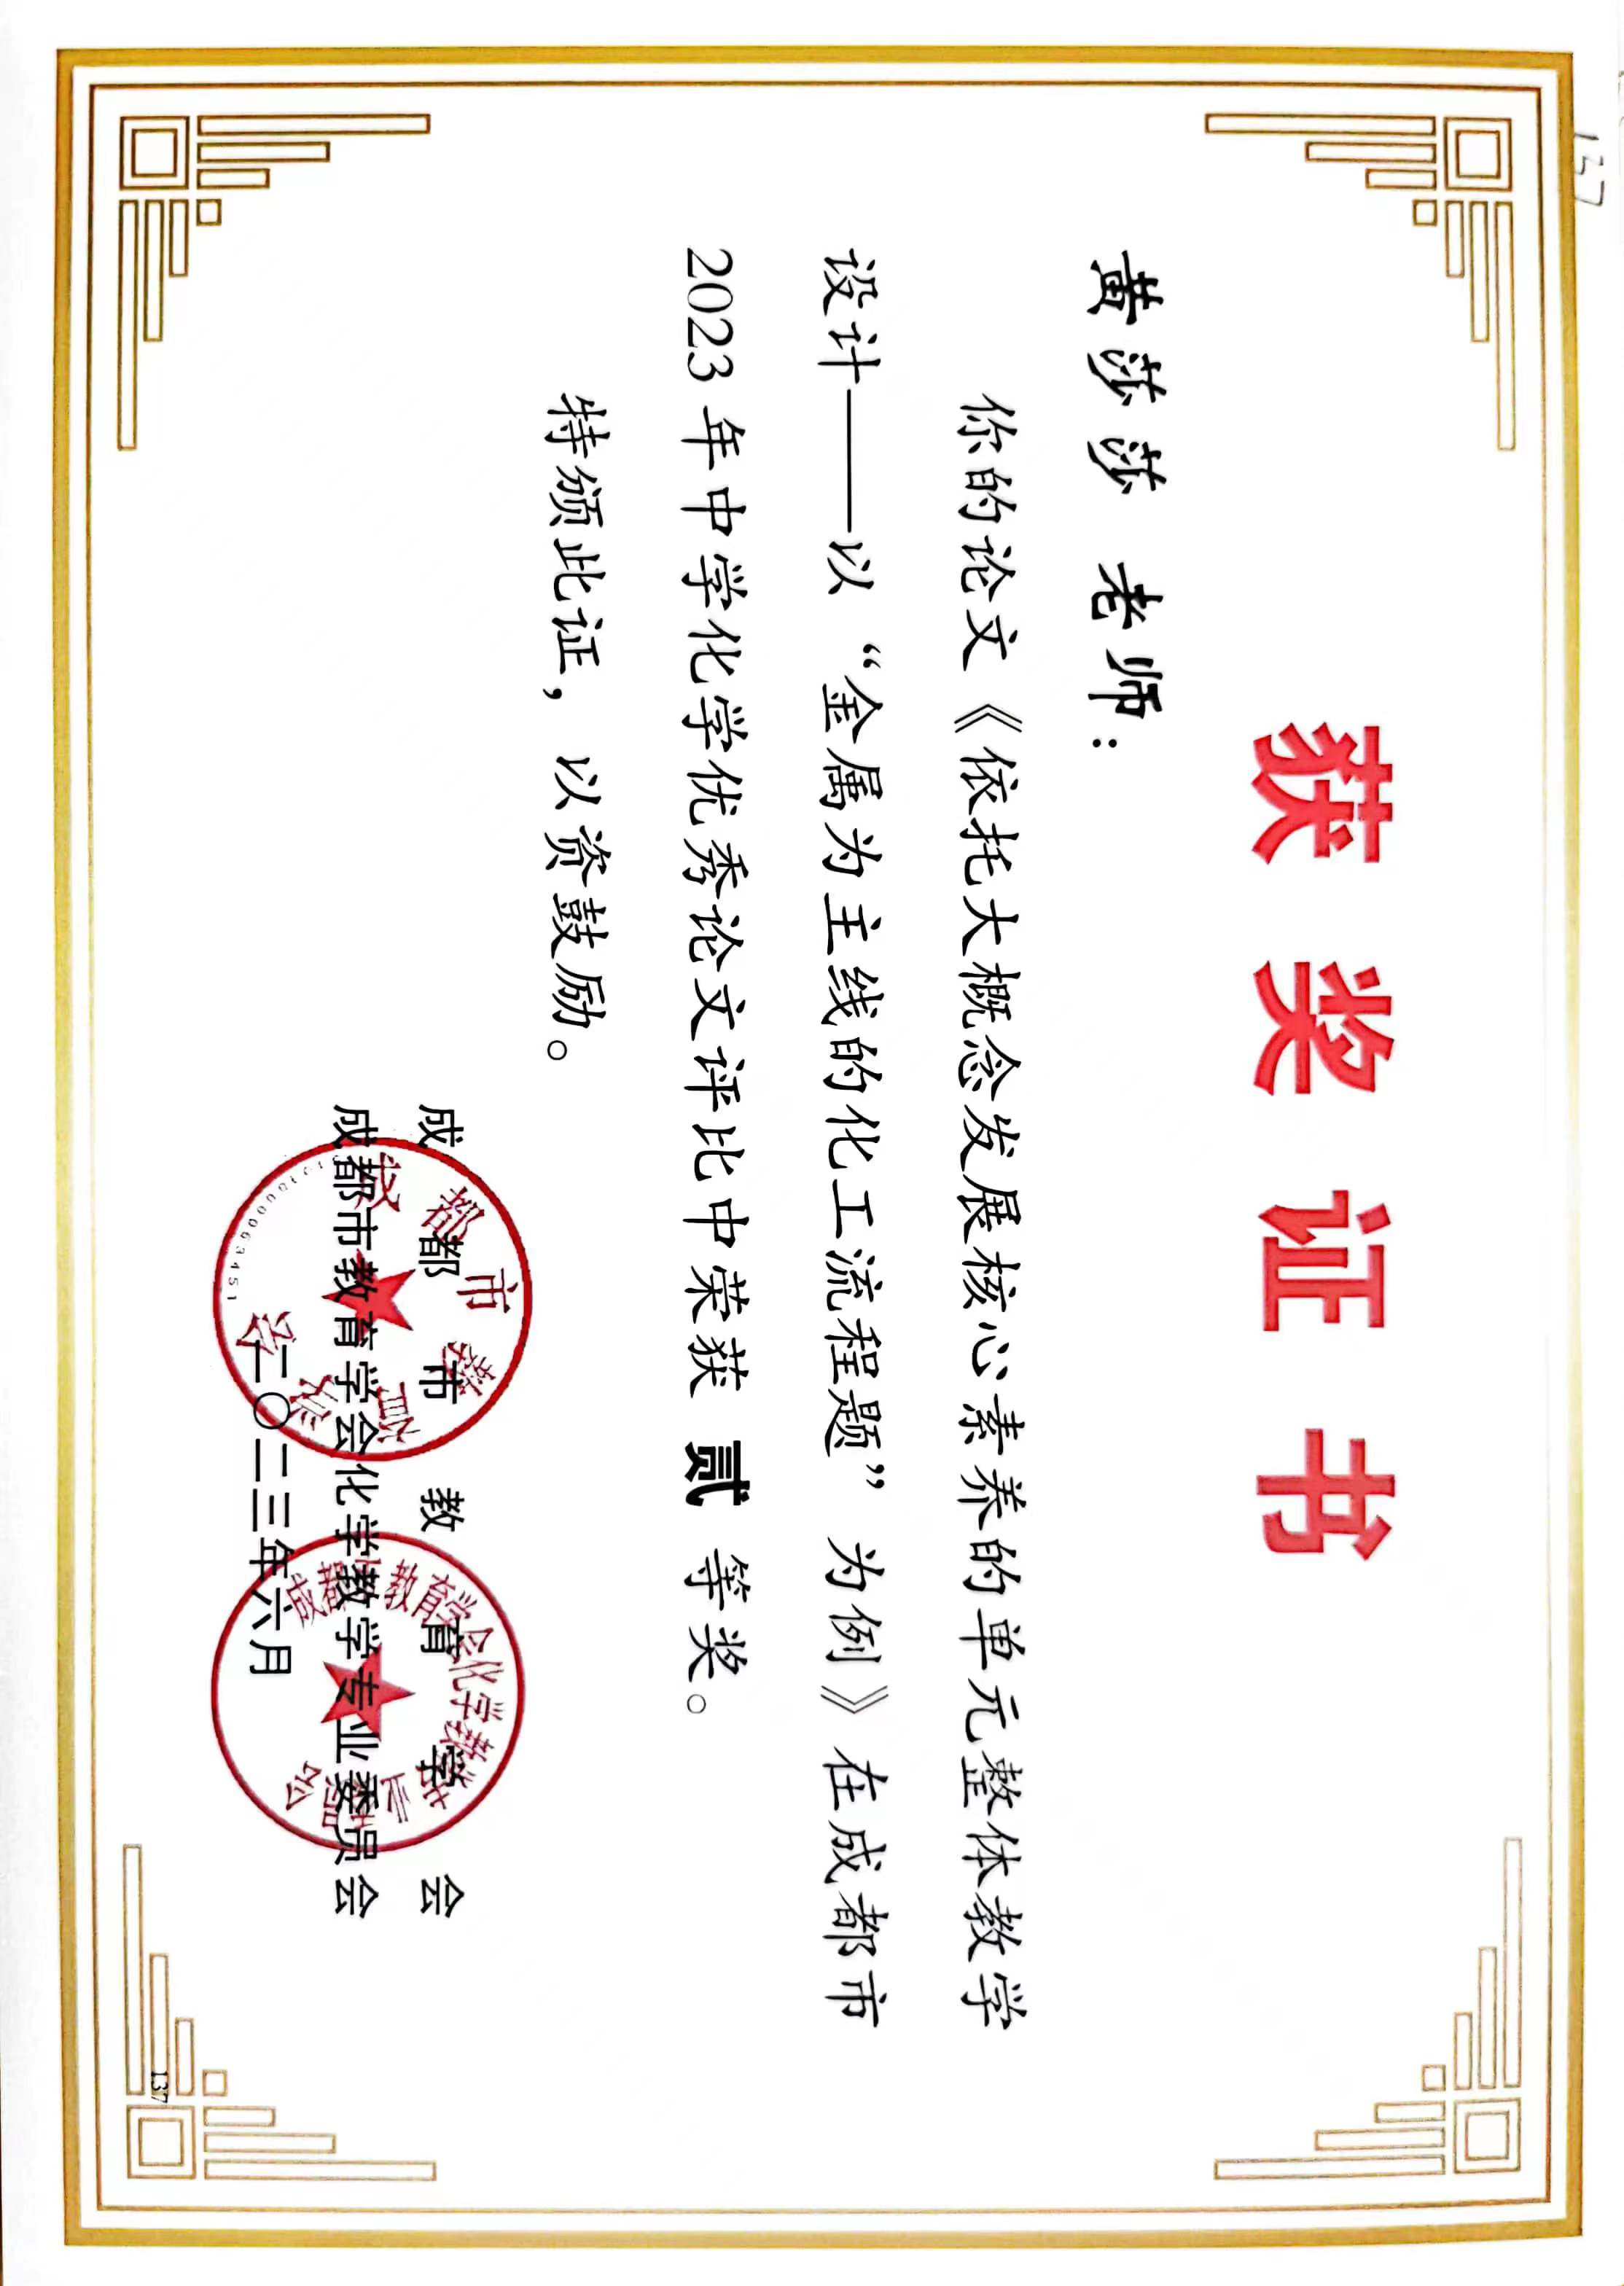 137
获奖证书
黄莎莎 老师：
你的论文《依托大概念发展核心素养的单元整体教学
设计——以“金属为主线的化工流程题”为例》在成都市
2023年中学化学优秀论文评比中荣获 贰 等奖。
特颁此证，以资鼓励。
成都市教育学会
成都市教育学会化学教学专业委员会
二〇二三年六月
成都市教育学会
成都市教育学会化学教学专业委员会
137